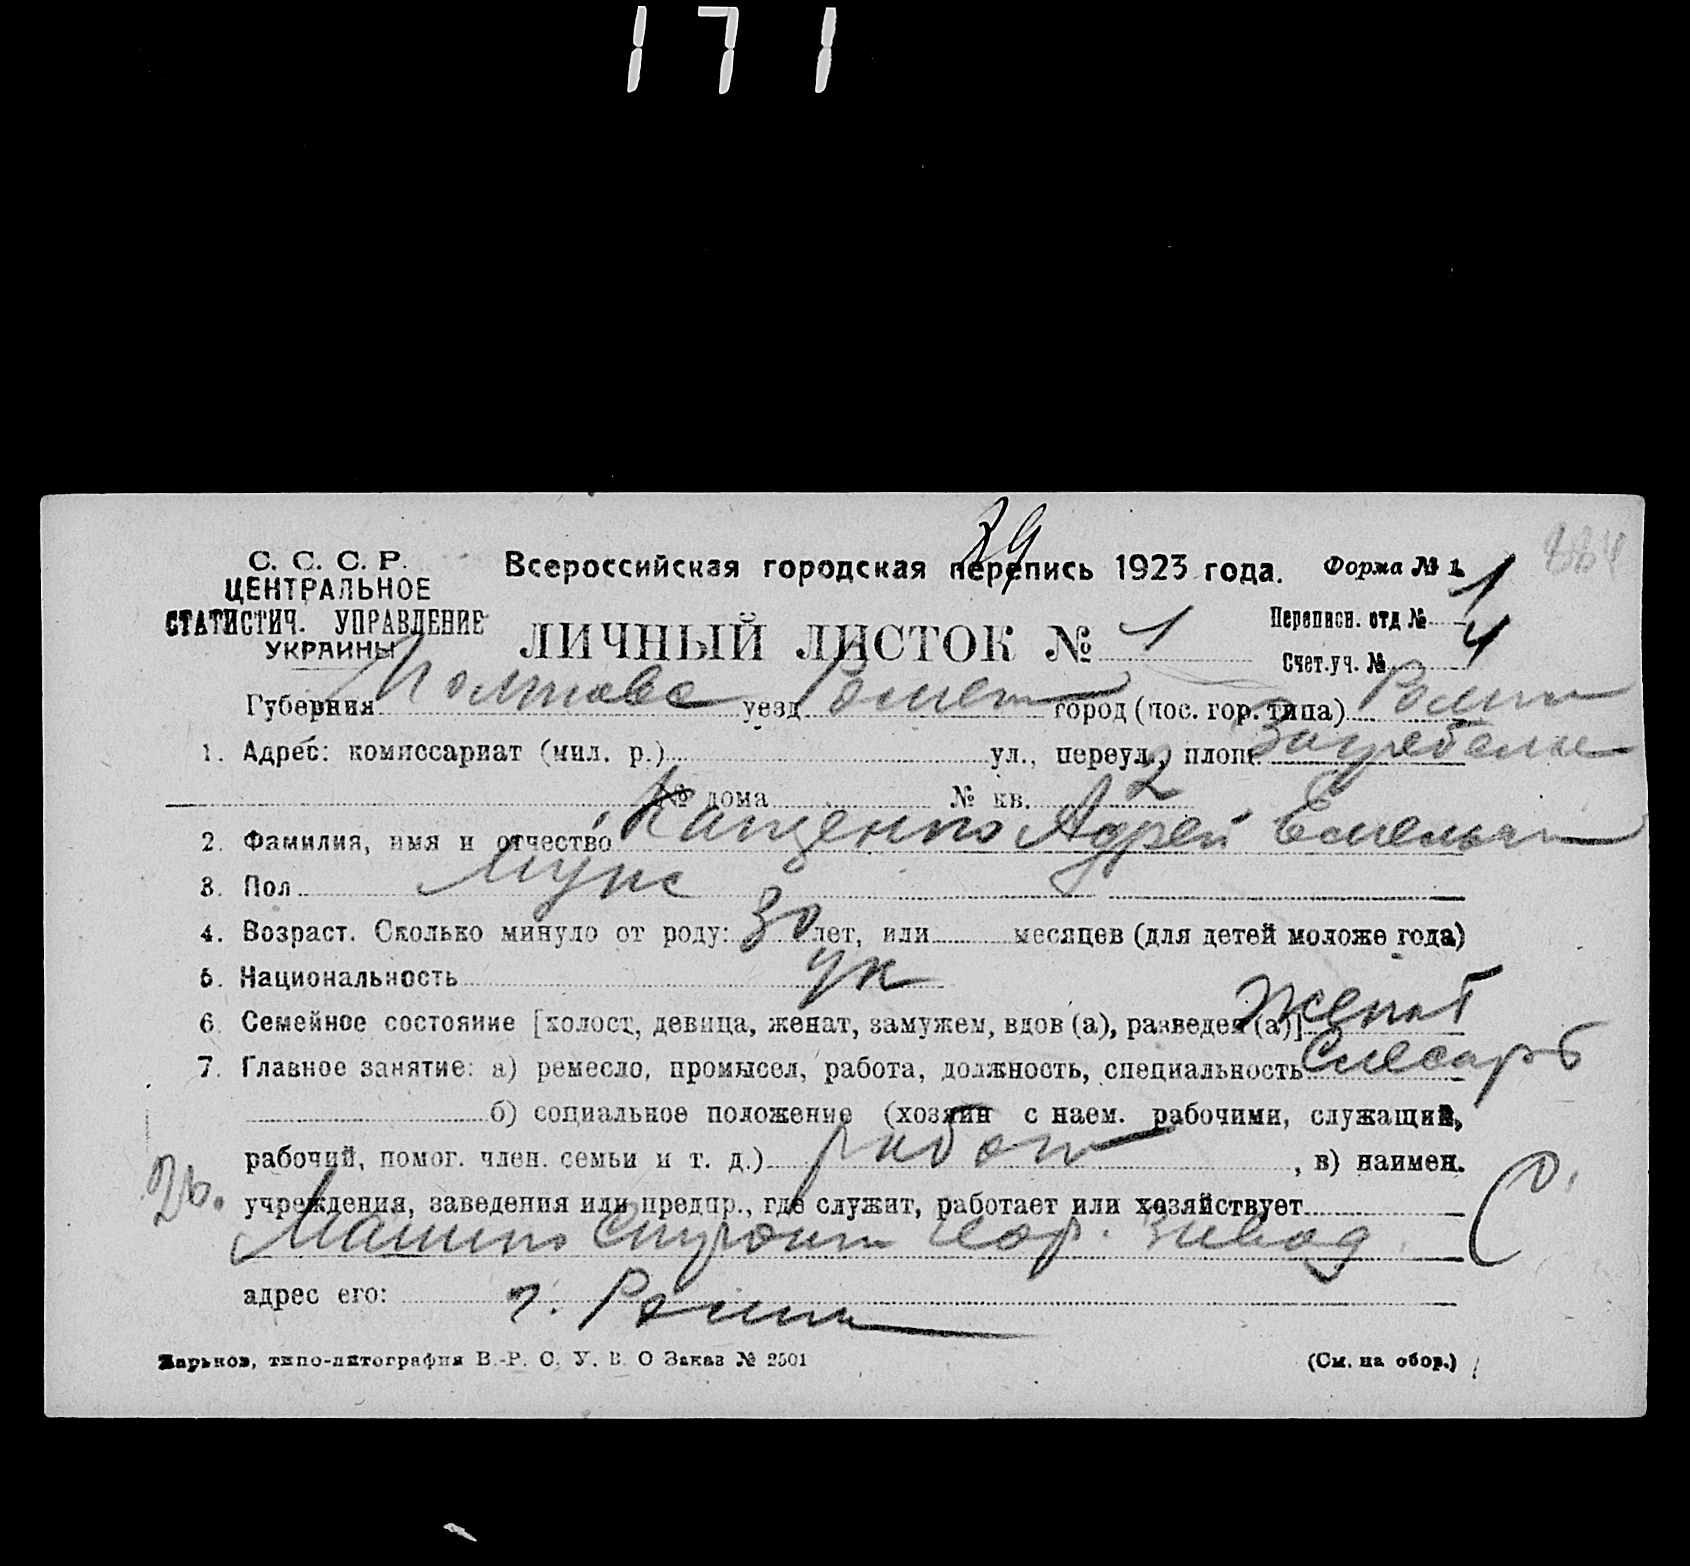 171
39
С. С. С. Р.
ЦЕНТРАЛЬНОЕ
СТАТИСТИЧ. УПРАВЛЕНИЕ
УКРАИНЫ
Всероссийская городская перепись 1923 года.
Форма № 1.
ЛИЧНЫЙ ЛИСТОК № 1
Переписн. отд № 1
Счет.уч. № 4
Губерния Полтавс уезд Ромен город (пос. гор. типа) Ромны
1. Адрес: комиссариат (мил. р.) ул., переул., площ. Загребелье
№ дома № кв. 2
2. Фамилия, имя и отчество Кащенко Адрей Емельян
3. Пол Мужс
4. Возраст. Сколько минуло от роду: 30 лет, или месяцев (для детей моложе года)
5. Национальность ук
6. Семейное состояние [холост, девица, женат, замужем, вдов (а), разведен (а)] женат
7. Главное занятие: а) ремесло, промысел, работа, должность, специальность Слесарь
б) социальное положение (хозяин с наем. рабочими, служащий,
рабочий, помог. член. семьи и т. д.) рабоч , в) наимен.
учреждения, заведения или предпр., где служит, работает или хозяйствует
Машино Строит завод
адрес его: г. Ромны
Харьков, типо-литография В.-Р. С. У. В. О Заказ № 2501
(См. на обор.)